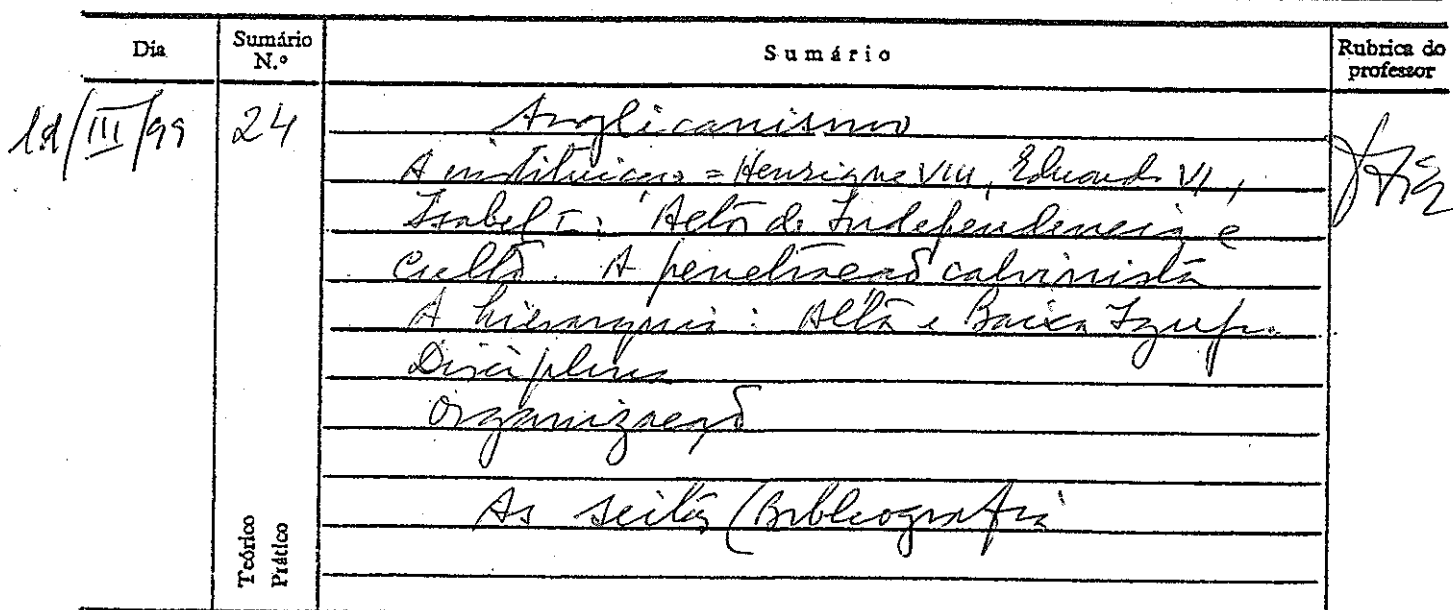 Dia Sumário N.º Sumário Rubrica do professor
/III/99 24 Anglicanismo
A instituição = Henrique VIII, Eduardo VI,
Isabel I: Actos de Independência e
Culto. A penetração calvinista
A hierarquia: Alta e Baixa Igreja
Disciplina
Organização
As seitas (Bibliografia
Teórico
Prático